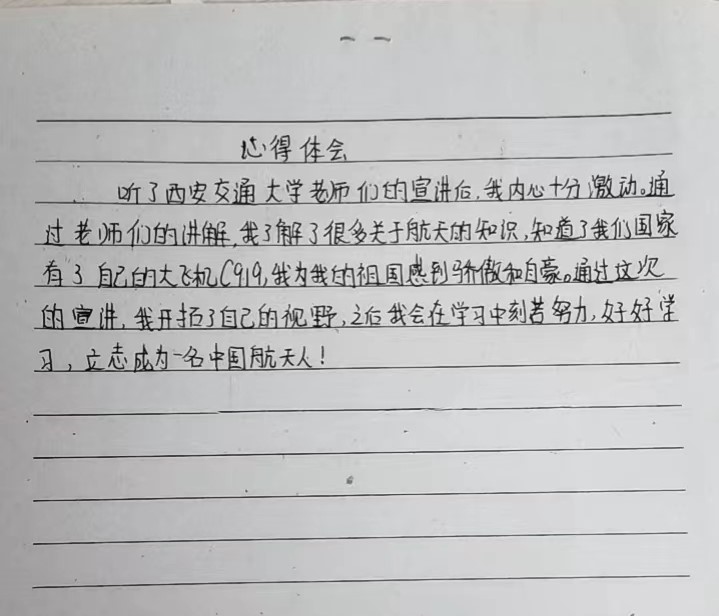 心得体会
听了西安交通大学老师们的宣讲后,我内心十分激动。通
过老师们的讲解,我了解了很多关于航天的知识,知道了我们国家
有了自己的大飞机C919,我为我的祖国感到骄傲和自豪。通过这次
的宣讲,我开拓了自己的视野,之后我会在学习中刻苦努力,好好学
习,立志成为一名中国航天人!